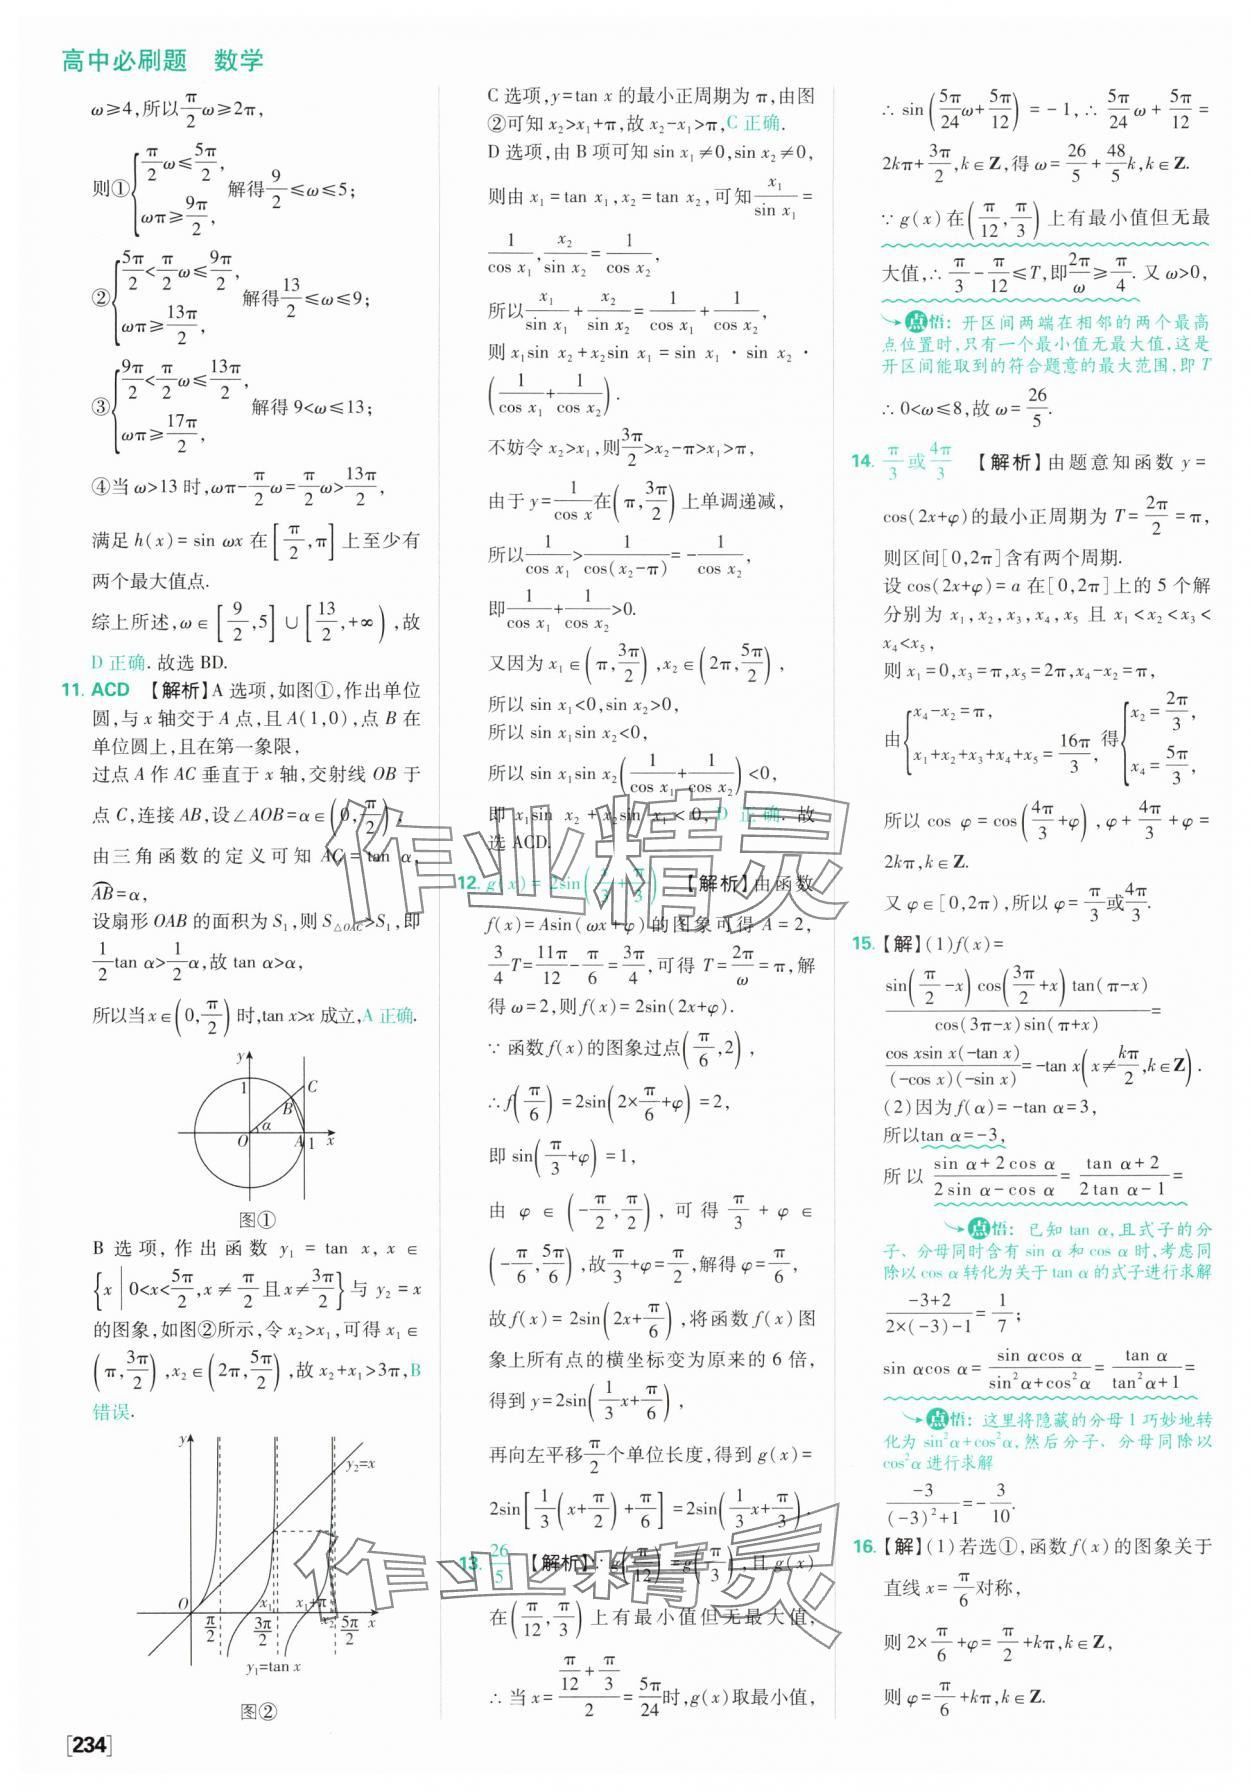 高中必刷题 数学
ω≥4,所以π/2 ω≥2π,
则①{π/2 ω≤5π/2, ωπ≥9π/2, 解得9/2≤ω≤5;
②{5π/2<π/2 ω≤9π/2, ωπ≥13π/2, 解得13/2≤ω≤9;
③{9π/2<π/2 ω≤13π/2, ωπ≥17π/2, 解得 9<ω≤13;
④当 ω>13 时,ωπ-π/2 ω=π/2 ω>13π/2,
满足 h(x)=sin ωx 在[π/2,π]上至少有
两个最大值点.
综上所述,ω∈[9/2,5]∪[13/2,+∞),故
D 正确. 故选 BD.
11. ACD 【解析】A 选项,如图①,作出单位
圆,与 x 轴交于 A 点,且 A(1,0),点 B 在
单位圆上,且在第一象限,
过点 A 作 AC 垂直于 x 轴,交射线 OB 于
点 C,连接 AB,设∠AOB=α∈(0,π/2),
由三角函数的定义可知 AC=tan α,
AB=α,
设扇形 OAB 的面积为 S₁,则 S△OAC>S₁,即
1/2 tan α>1/2 α,故 tan α>α,
所以当 x∈(0,π/2)时,tan x>x 成立,A 正确.
y
1
C
B
O
α
A
1
x
图①
B 选项,作出函数 y₁=tan x,x∈
{x|0<x<5π/2,x≠π/2且x≠3π/2}与 y₂=x
的图象,如图②所示,令 x₂>x₁,可得 x₁∈
(π,3π/2),x₂∈(2π,5π/2),故 x₂+x₁>3π,B
错误.
y
y₂=x
O
π/2
x₁
3π/2
x₁+π
x₂
5π/2
x
y₁=tan x
图②
[234]
C 选项,y=tan x 的最小正周期为 π,由图
②可知 x₂>x₁+π,故 x₂-x₁>π,C 正确.
D 选项,由 B 项可知 sin x₁≠0,sin x₂≠0,
则由 x₁=tan x₁,x₂=tan x₂,可知x₁/sin x₁=
1/cos x₁,x₂/sin x₂=1/cos x₂,
所以x₁/sin x₁+x₂/sin x₂=1/cos x₁+1/cos x₂,
则 x₁sin x₂+x₂sin x₁=sin x₁·sin x₂·
(1/cos x₁+1/cos x₂).
不妨令 x₂>x₁,则3π/2>x₂-π>x₁>π,
由于 y=1/cos x在(π,3π/2)上单调递减,
所以1/cos x₁>1/cos(x₂-π)=-1/cos x₂,
即1/cos x₁+1/cos x₂>0.
又因为 x₁∈(π,3π/2),x₂∈(2π,5π/2),
所以 sin x₁<0,sin x₂>0,
所以 sin x₁sin x₂<0,
所以 sin x₁sin x₂(1/cos x₁+1/cos x₂)<0,
即 x₁sin x₂+x₂sin x₁<0,D 正确. 故
选 ACD.
12. g(x)=2sin(x/3+π/3) 【解析】由函数
f(x)=Asin(ωx+φ)的图象可得 A=2,
3/4 T=11π/12-π/6=3π/4,可得 T=2π/ω=π,解
得 ω=2,则 f(x)=2sin(2x+φ).
∵函数 f(x)的图象过点(π/6,2),
∴f(π/6)=2sin(2×π/6+φ)=2,
即 sin(π/3+φ)=1,
由 φ∈(-π/2,π/2),可得π/3+φ∈
(-π/6,5π/6),故π/3+φ=π/2,解得 φ=π/6,
故 f(x)=2sin(2x+π/6),将函数 f(x)图
象上所有点的横坐标变为原来的 6 倍,
得到 y=2sin(1/3 x+π/6),
再向左平移π/2个单位长度,得到 g(x)=
2sin[1/3(x+π/2)+π/6]=2sin(1/3 x+π/3).
13. 26/5 【解析】∵g(π/12)=g(π/3),且 g(x)
在(π/12,π/3)上有最小值但无最大值,
∴当 x=(π/12+π/3)/2=5π/24时,g(x)取最小值,
∴sin(5π/24 ω+5π/12)=-1,∴5π/24 ω+5π/12=
2kπ+3π/2,k∈Z,得 ω=26/5+48/5 k,k∈Z.
∵g(x)在(π/12,π/3)上有最小值但无最
大值,∴π/3-π/12≤T,即2π/ω≥π/4. 又 ω>0,
点悟:开区间两端在相邻的两个最高
点位置时,只有一个最小值无最大值,这是
开区间能取到的符合题意的最大范围,即 T
∴0<ω≤8,故 ω=26/5.
14. π/3或4π/3 【解析】由题意知函数 y=
cos(2x+φ)的最小正周期为 T=2π/2=π,
则区间[0,2π]含有两个周期.
设 cos(2x+φ)=a 在[0,2π]上的 5 个解
分别为 x₁,x₂,x₃,x₄,x₅ 且 x₁<x₂<x₃<
x₄<x₅,
则 x₁=0,x₃=π,x₅=2π,x₄-x₂=π,
由{x₄-x₂=π, x₁+x₂+x₃+x₄+x₅=16π/3, 得{x₂=2π/3, x₄=5π/3,
所以 cos φ=cos(4π/3+φ),φ+4π/3+φ=
2kπ,k∈Z.
又 φ∈[0,2π),所以 φ=π/3或4π/3.
15. 【解】(1)f(x)=
sin(π/2-x)cos(3π/2+x)tan(π-x)/cos(3π-x)sin(π+x)=
cos xsin x(-tan x)/(-cos x)(-sin x)=-tan x(x≠kπ/2,k∈Z).
(2)因为 f(α)=-tan α=3,
所以tan α=-3,
所以 (sin α+2cos α)/(2sin α-cos α)=(tan α+2)/(2tan α-1)=
点悟:已知 tan α,且式子的分
子、分母同时含有 sin α 和 cos α 时,考虑同
除以 cos α 转化为关于 tan α 的式子进行求解
(-3+2)/(2×(-3)-1)=1/7;
sin αcos α=sin αcos α/(sin²α+cos²α)=tan α/(tan²α+1)=
点悟:这里将隐藏的分母 1 巧妙地转
化为 sin²α+cos²α,然后分子、分母同除以
cos²α 进行求解
-3/((-3)²+1)=-3/10.
16. 【解】(1)若选①,函数 f(x)的图象关于
直线 x=π/6对称,
则 2×π/6+φ=π/2+kπ,k∈Z,
则 φ=π/6+kπ,k∈Z.
作业精灵
作业精灵